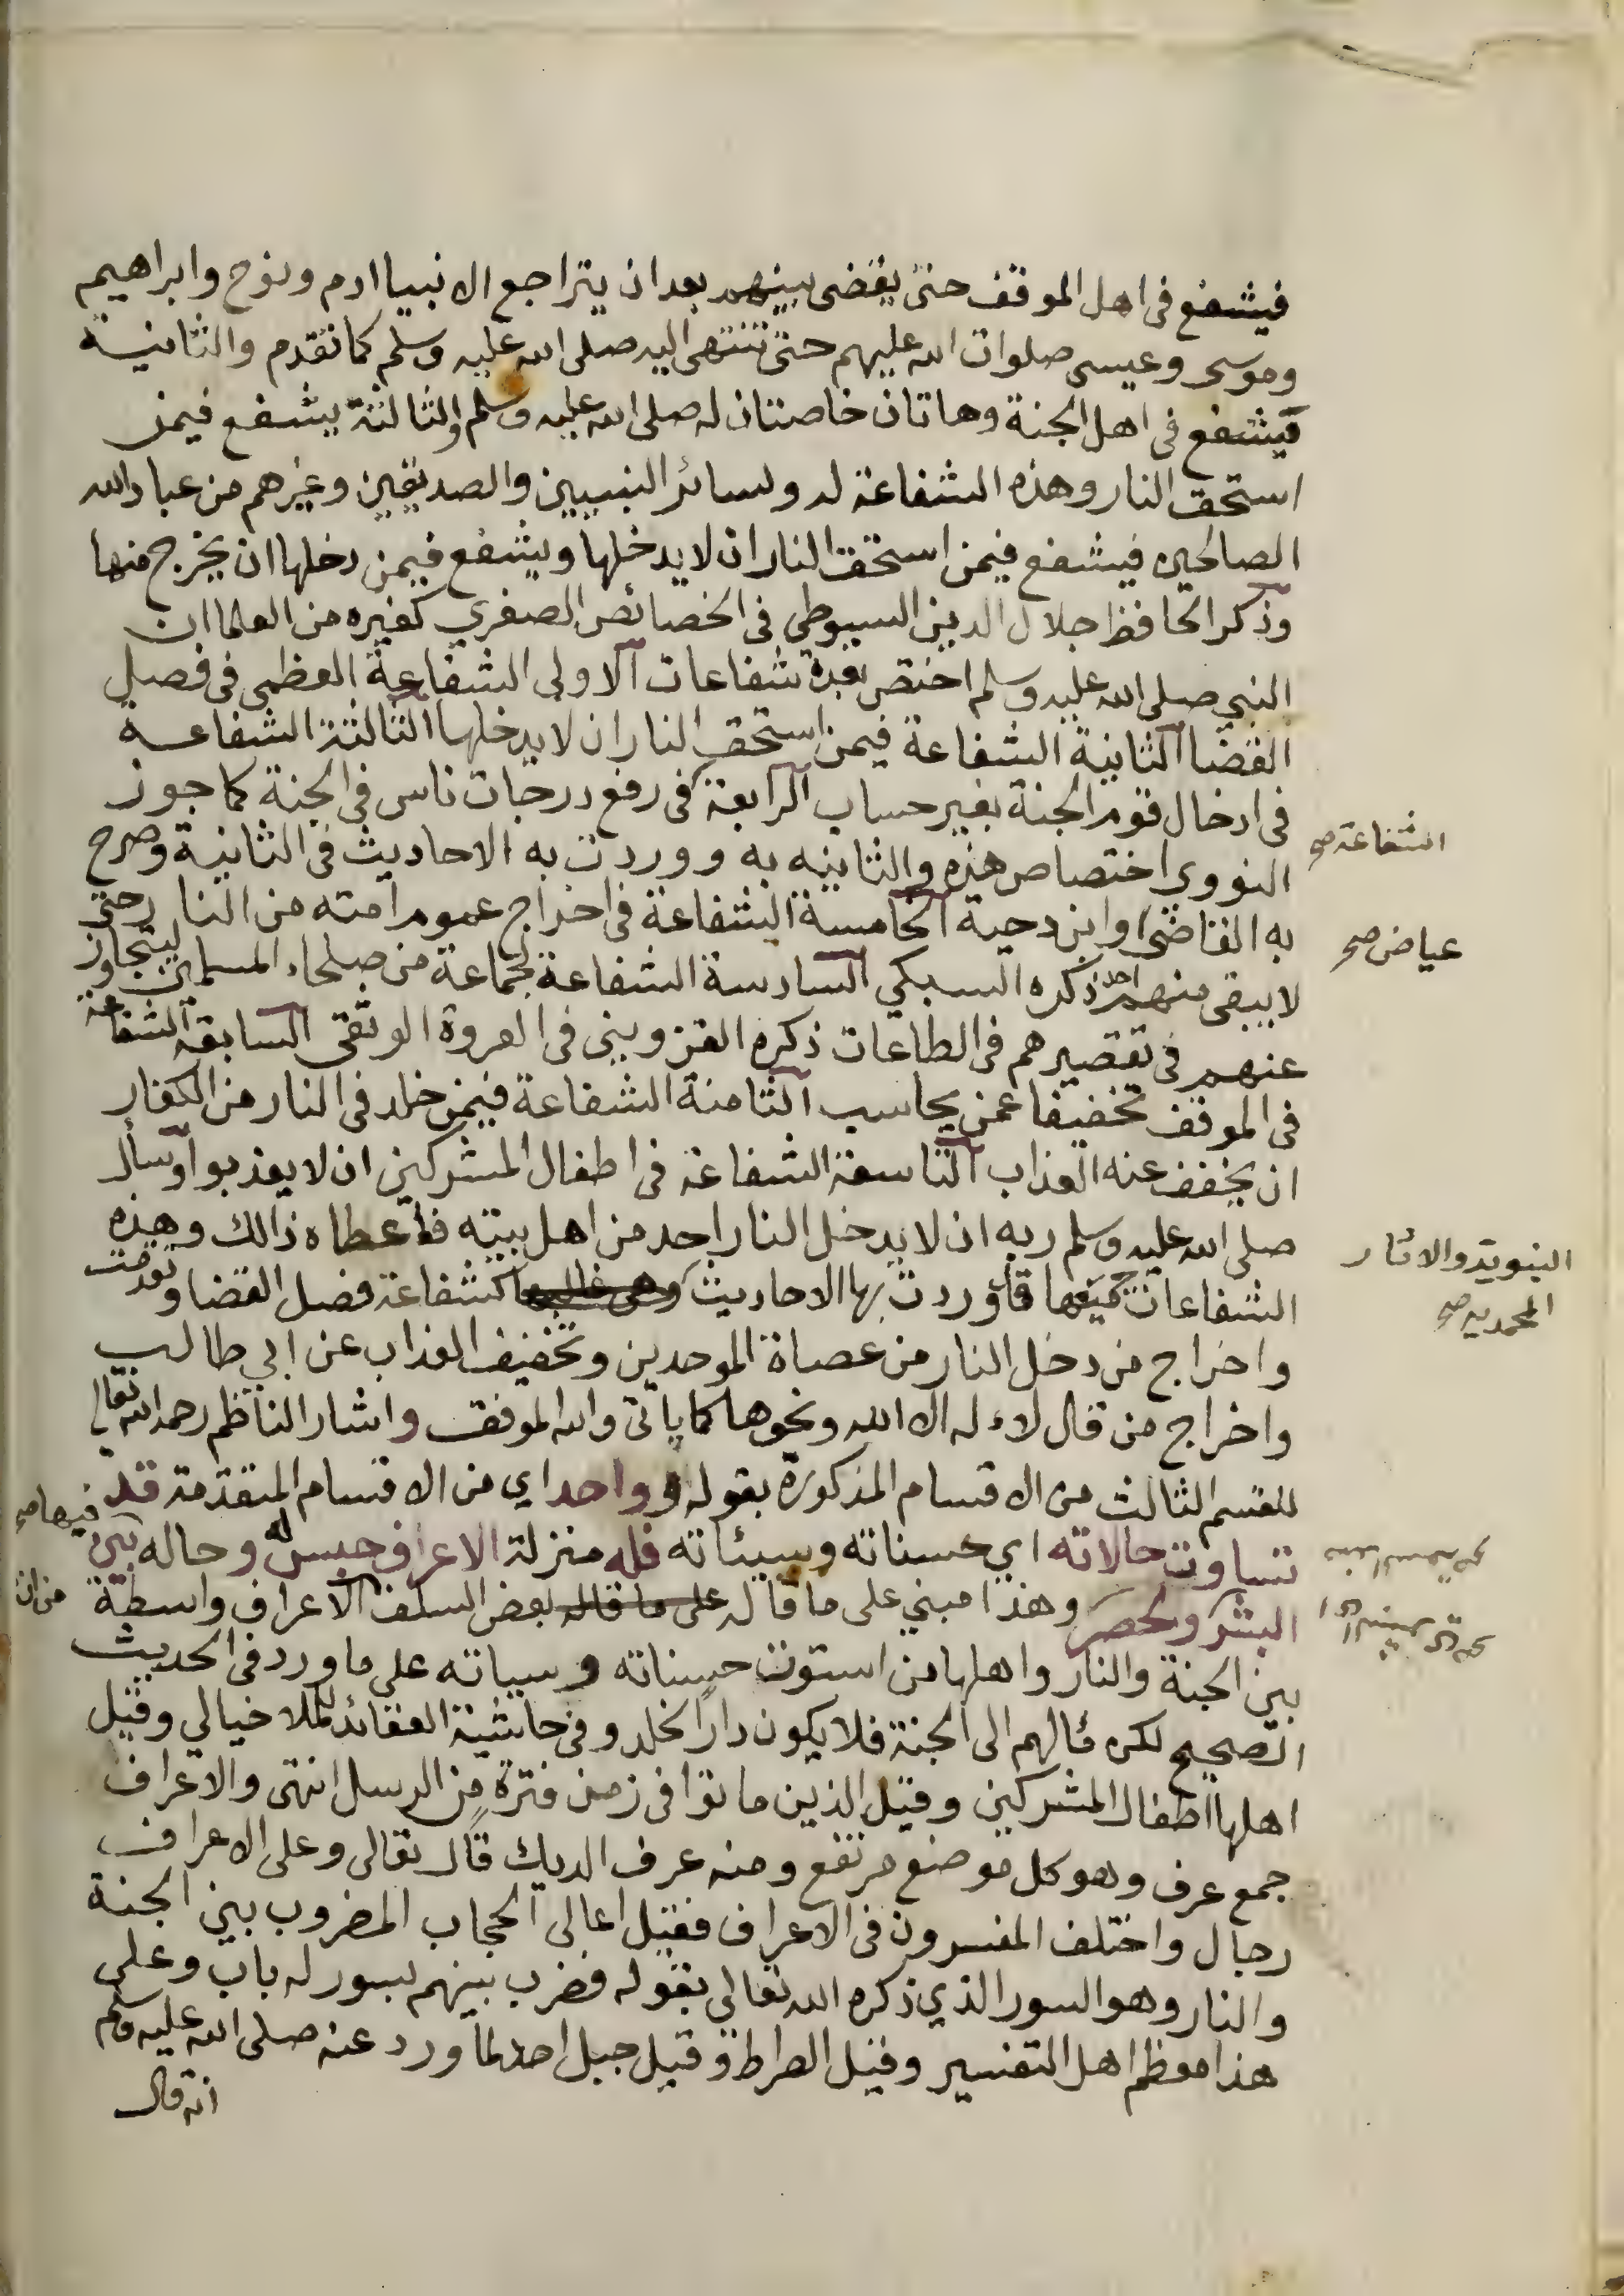 فيشفع فى اهل الموقف حتى يقضى بينهم بعد ان يتراجع الانبيا ادم ونوح وابراهيم
وموسى وعيسى صلوات الله عليهم حتى تنتهى اليه صلى الله عليه وسلم كما تقدم والثانية
فيشفع فى اهل الجنة وهاتان خاصتان له صلى الله عليه وسلم والثالثة يشفع فيمن
استحق النار وهذه الشفاعة له ولسائر النبيين والصديقين وغيرهم من عباد الله
الصالحين فيشفع فيمن استحق النار ان لا يدخلها ويشفع فيمن دخلها ان يخرج منها
وذكر الحافظ جلال الدين السيوطي فى الخصائص الصغري كغيره من العلما ان
النبي صلى الله عليه وسلم اختص بعدة شفاعات الاولى الشفاعة العظمى فى فصل
القضا الثانية الشفاعة فيمن استحق النار ان لا يدخلها الثالثة الشفاعة
فى ادخال قوم الجنة بغير حساب الرابعة فى رفع درجات ناس فى الجنة كما جوز
الشفاعة صح
النووي اختصاص هذه والثانيه به ووردت به الاحاديث فى الثانية وصرح
به القاضى وابن دحية الخامسة الشفاعة فى اخراج عموم امته من النار حتى
عياض صح
لا يبقى منهم احد ذكره السبكي السادسة الشفاعة لجماعة من صلحاء المسلمين ليتجاوز
عنهم فى تقصيرهم فى الطاعات ذكره القزويني فى العروة الوثقى السابعة الشفاعة
فى الموقف تخفيفا عمن يحاسب الثامنة الشفاعة فيمن خلد فى النار من الكفار
ان يخفف عنه العذاب التاسعة الشفاعة فى اطفال المشركين ان لا يعذبوا وسأل
صلى الله عليه وسلم ربه ان لا يدخل النار احد من اهل بيته فاعطاه ذالك وهذه
الشفاعات جميعها قد وردت بها الاحاديث وهى غالبها كشفاعة فصل القضا وتقدمت
النبوية والاثار
المحمديه صح
واخراج من دخل النار من عصاة الموحدين وتخفيف العذاب عن ابي طالب
واخراج من قال لا اله الا الله ونحوها كما ياتى والله الموفق واشار الناظم رحمه الله تعالى
للقسم الثالث من الاقسام المذكورة بقوله وواحد اي من الاقسام المتقدمة قد
فيها صح
تساوت حالاته اي حسناته وسيئاته فله منزلة الاعراف حبس له وحاله بين
البشر والحصر وهذا مبني على ما قاله على ما قاله بعض السلف الاعراف واسطة
من ان
بين الجنة والنار واهلها من استوت حسناته وسياته على ما ورد فى الحديث
الصحيح لكن مآلهم الى الجنة فلا يكون دار الخلد وفى حاشية العقائد لملا خيالي وقيل
اهلها اطفال المشركين وقيل الذين ماتوا فى زمن فترة من الرسل انتهى والاعراف
جمع عرف وهو كل موضع مرتفع ومنه عرف الديك قال تعالى وعلى الاعراف
رجال واختلف المفسرون فى الاعراف فقيل اعالى الحجاب المضروب بين الجنة
والنار وهو السور الذي ذكره الله تعالى بقوله فضرب بينهم بسور له باب وعلى
هذا معظم اهل التفسير وقيل الصراط وقيل جبل احد لما ورد عنه صلى الله عليه وسلم
انه قال